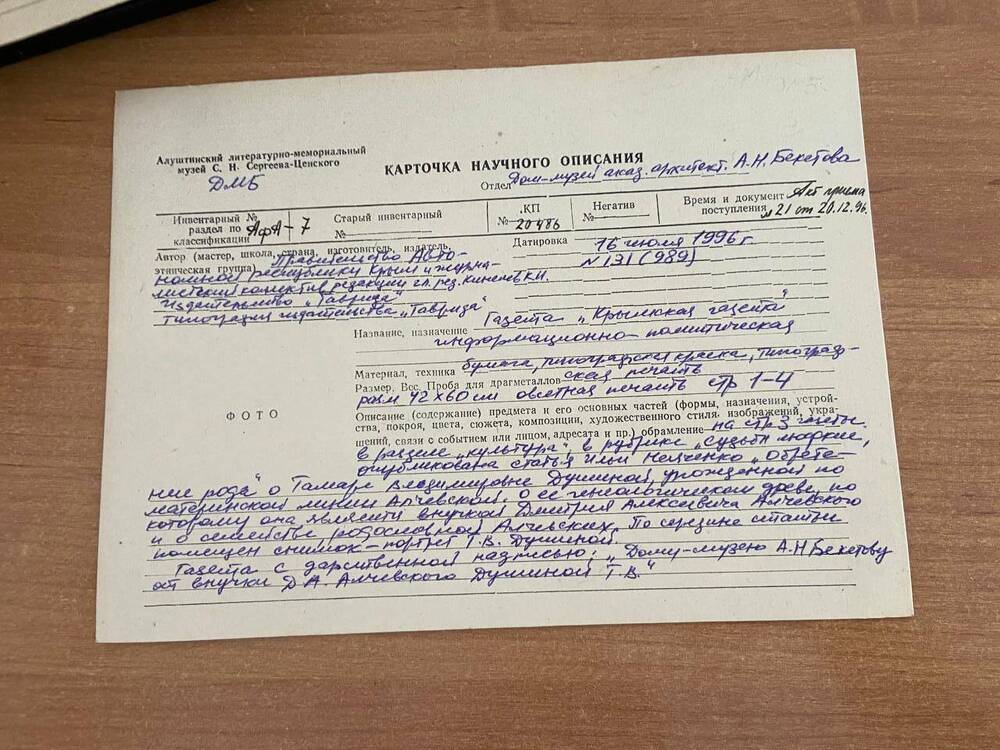 Алуштинский литературно-мемориальный
музей С. Н. Сергеева-Ценского
ДМБ
КАРТОЧКА НАУЧНОГО ОПИСАНИЯ
Отдел Дом-музей акад. архитект. А.Н. Бекетова
Инвентарный №
раздел по
классификации АфА-7
Старый инвентарный
№
КП
№ 20486
Негатив
№
Время и документ Акт приема
поступления №21 от 20.12.96.
Автор (мастер, школа, страна, изготовитель, издатель,
этническая группа) Правительство Авто-
номной республики Крым и журна-
листский коллектив редакции гл. ред.
Издательство „Таврида"
типография издательства „Таврида"
Датировка 16 июля 1996 г
№ 131 (989)
Название, назначение Газета „Крымская газета"
информационно-политическая
Материал, техника бумага, типографская краска, типограф-
Размер. Вес. Проба для драгметаллов ская печать
разм 42х60 см печать стр 1-4
ФОТО
Описание (содержание) предмета и его основных частей (формы, назначения, устрой-
ства, покроя, цвета, сюжета, композиции, художественного стиля. изображений, укра-
шений, связи с событием или лицом, адресата и пр.) обрамление на стр 3 газеты
в разделе „культура" в рубрике „Судьбы людские,
опубликована статья Ильи „Обрете-
ние рода" о Тамаре Владимировне Душиной, урожденной по
материнской линии Алчевской. О ее генеологическом древе, по
которому она является внучкой Дмитрия Алексеевича Алчевского
и о семействе родословной Алчевских. По середине статьи
помещен снимок-портрет Т.В. Душиной.
Газета с дарственной надписью: „Дому-музею А.Н Бекетову
от внучки Д.А. Алчевского Душиной Т.В."